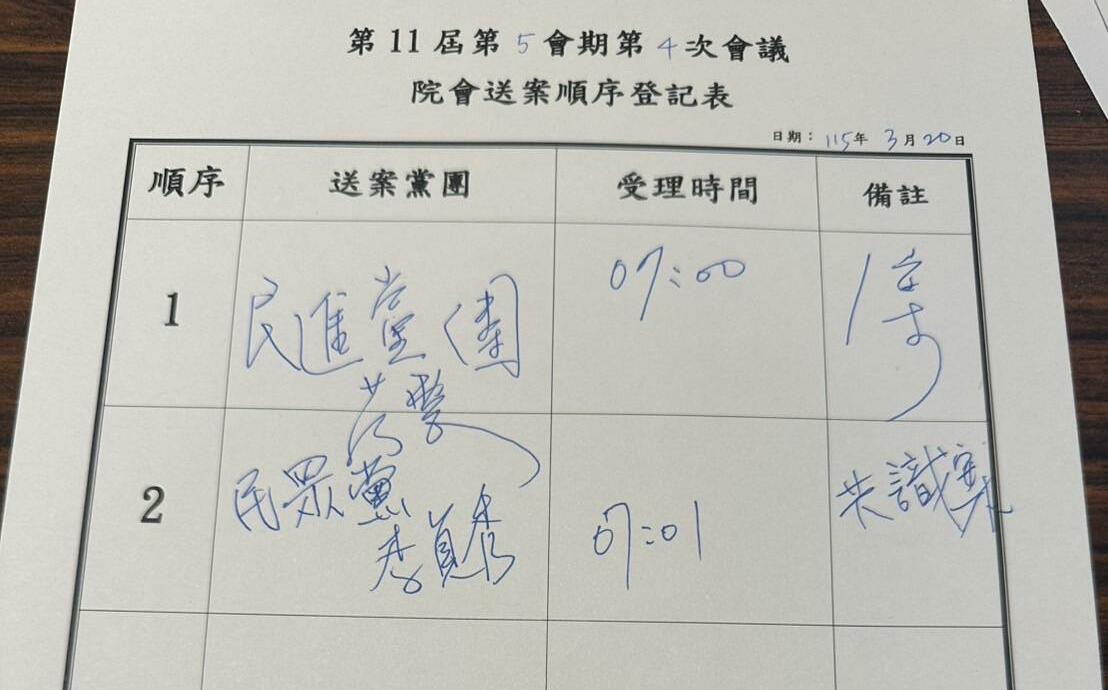 第11屆第5會期第4次會議
院會送案順序登記表
日期：115年3月20日
順序 送案黨團 受理時間 備註
1 民進黨團 07:00 1案
2 民眾黨 李貞秀 07:01 共識案